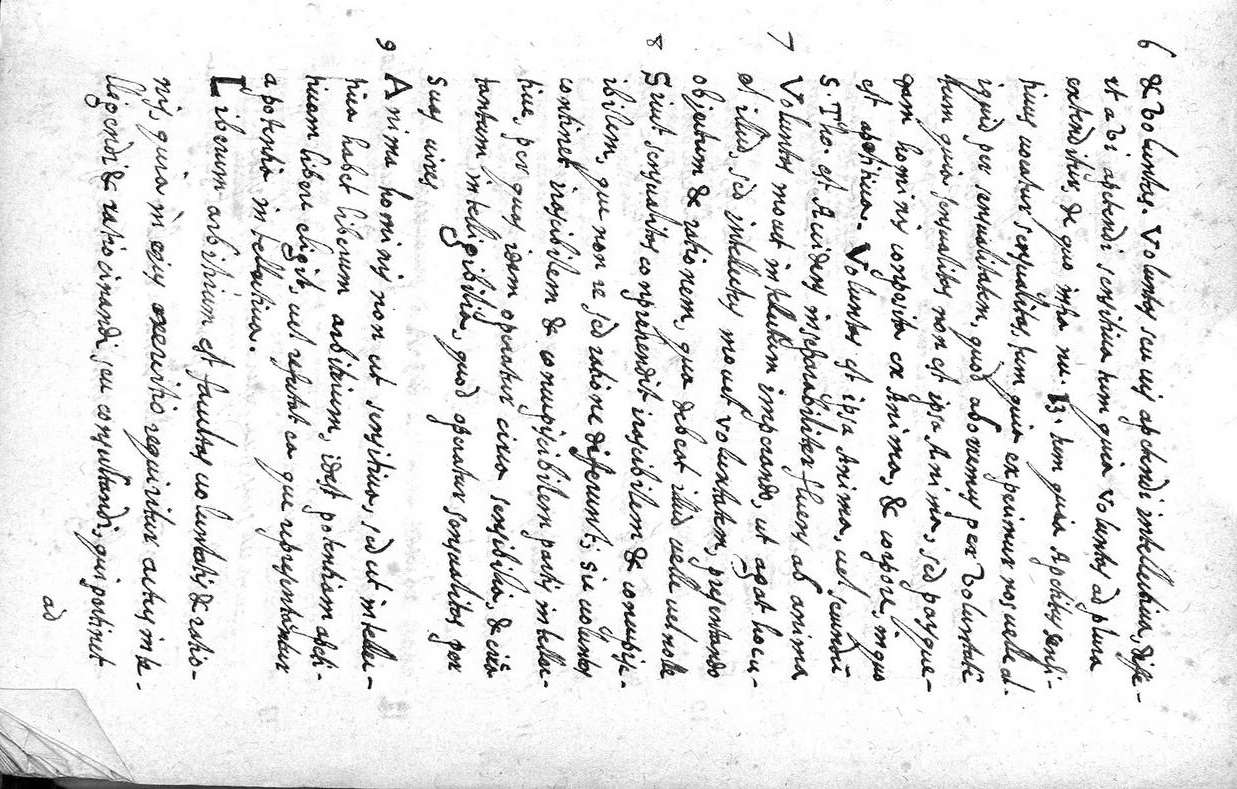 6 & Voluntas. Voluntas seu vis apetendi intellectiua, diffe-
rt a vi apetendi sensitiua tum quia voluntas ad plura
extenditur, de quo infra nu. 13. tum quia Apetitus sensi-
tiuus uocatur sensualitas, tum quia experimur nos uelle al-
iquid per sensualitatem, quod aborremus per Voluntatē
tum quia sensualitas non est ipsa Anima, sed pars que-
dam hominis composita ex Anima, & corpore, in quo
est apetitiua. Voluntas est ipsa Anima, uel secundū
S. Tho. est Accidens inseparabiliter fluens ab anima
7 Voluntas mouet intellectum imperando, ut agat hoc u-
el illud, sed intellectus mouet voluntatem, presentando
objectum & rationem, qua debeat illud uelle uel nolle
8 Sicut sensualitas comprehendit irascibilem & concupisc-
ibilem, que non re sed ratione differunt; sic uoluntas
continet irascibilem & concupiscibilem partis intellec-
tiue, per quas idem operatur circa sensibilia, & circa
tantum intelligibilia, quod operatur sensualitas per
suas uires
9 Anima hominis non ut sensitiua, sed ut intellec-
tiua habet liberum arbitrium, idest potentiam apeti-
tiuam libere eligit, uel refutat ea que representantur
a potentia intellectiua.
Liberum arbitrium est facultas uoluntatis & ratio-
nis, quia in eius exercitio requiritur actus inte-
ligendi & ratiocinandi, seu consultandi, qui pertinet
ad